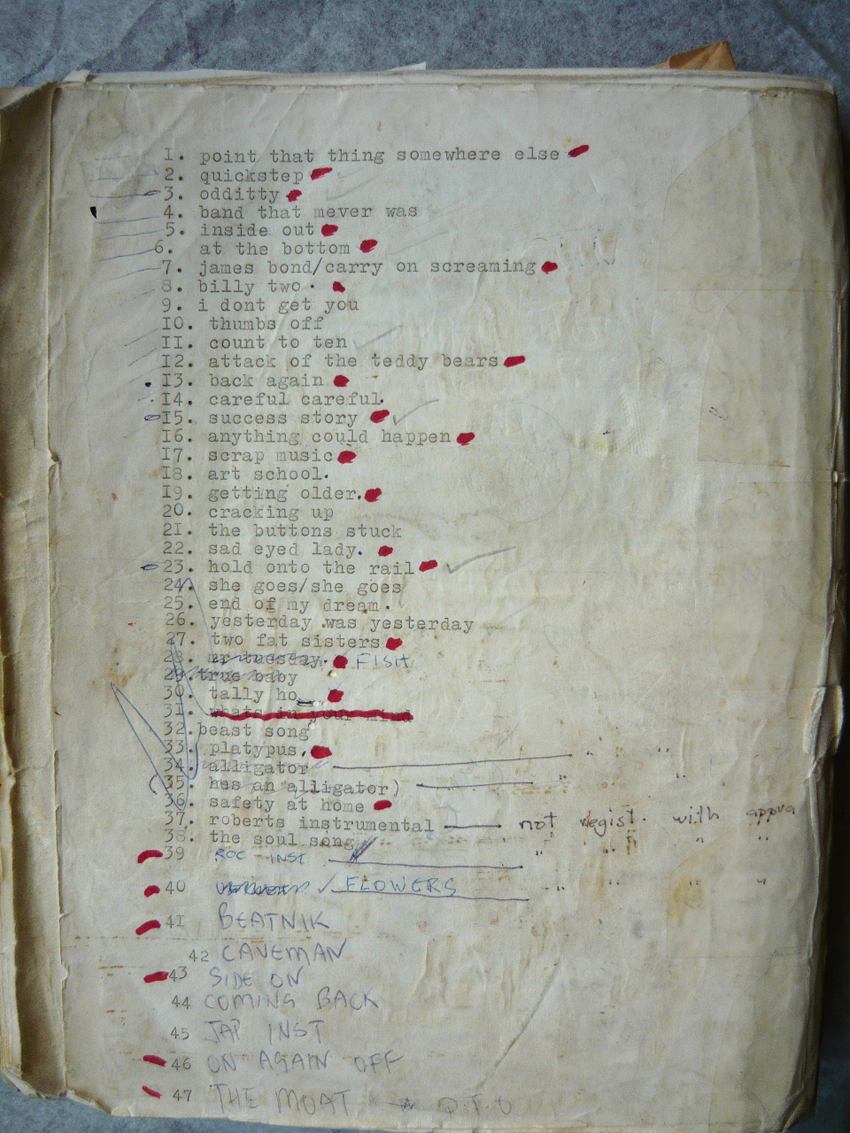 I. point that thing somewhere else
2. quickstep
3. odditty
4. band that mever was
5. inside out
6. at the bottom
7. james bond/carry on screaming
8. billy two .
9. i dont get you
IO. thumbs off
II. count to ten
I2. attack of the teddy bears
I3. back again
I4. careful careful.
I5. success story
I6. anything could happen
I7. scrap music
I8. art school.
I9. getting older.
20. cracking up
2I. the buttons stuck
22. sad eyed lady.
23. hold onto the rail
24. she goes/she goes
25. end of my dream.
26. yesterday was yesterday
27. two fat sisters
28. mr tuesday. FISH
29. true baby
30. tally ho
3I. whats in your mind
32. beast song
33. platypus, " "
34. alligator
35. hes an alligator) " "
36. safety at home
37. roberts instrumental — not regist. with appra
38. the soul song " " " "
39 ROC INST
40 ✓ FLOWERS " " " "
4I BEATNIK
42 CAVEMAN
43 SIDE ON
44 COMING BACK
45 JAP INST
46 ON AGAIN OFF
47 THE MOAT P.T.O